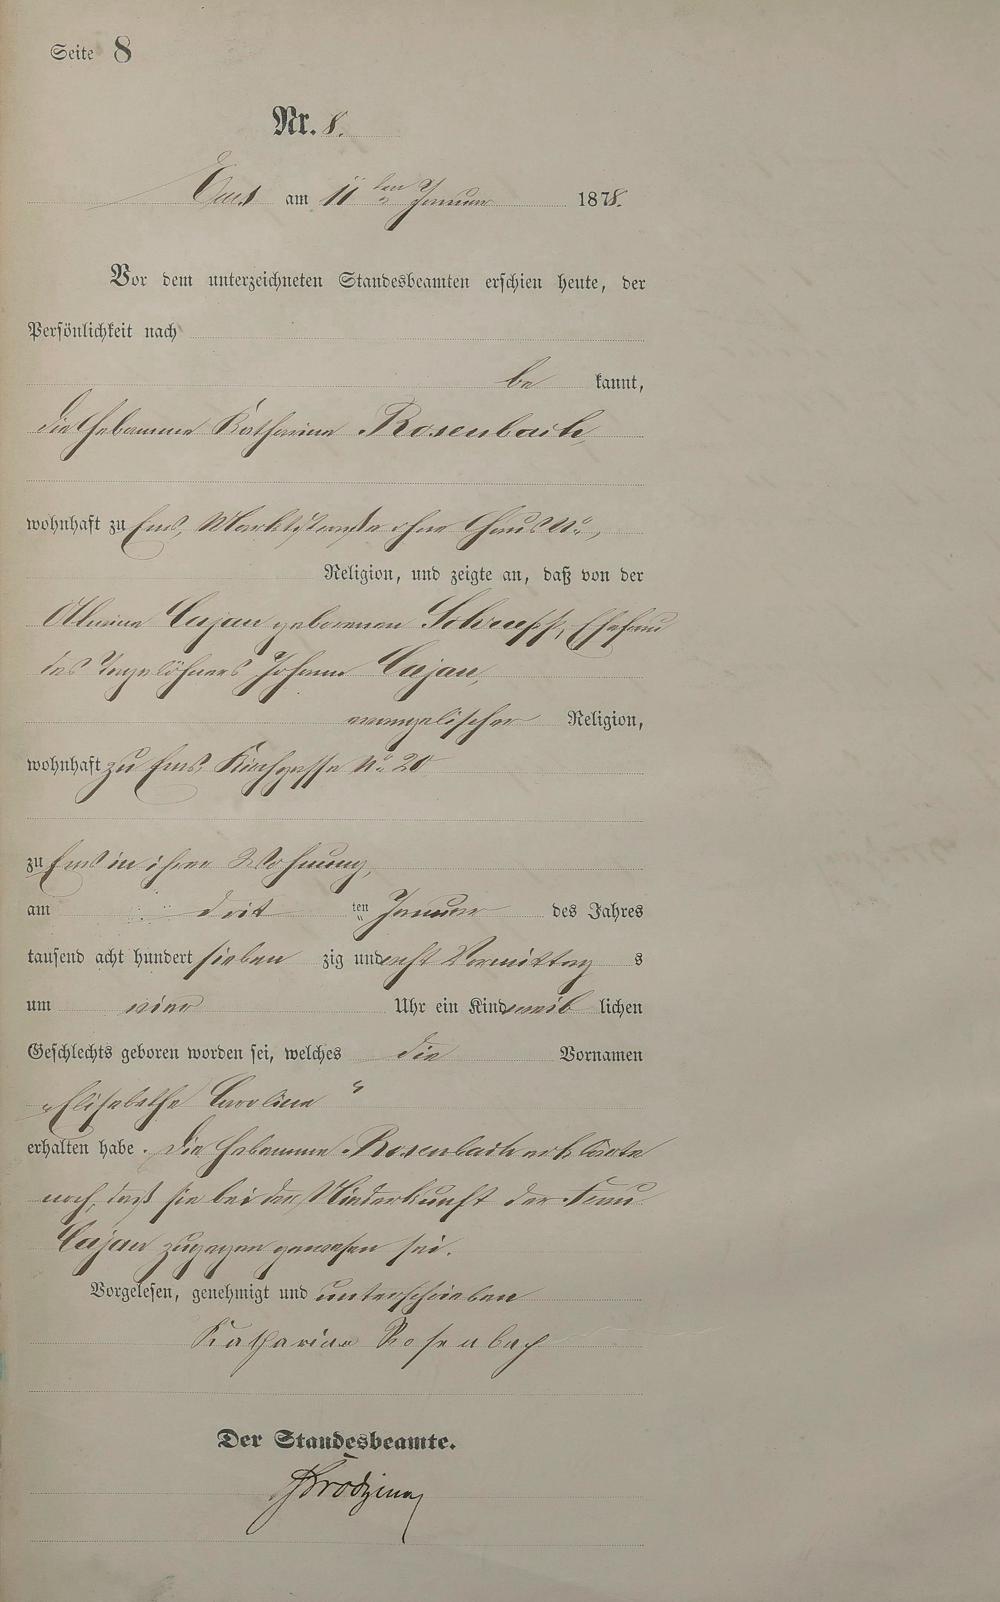 Seite 8
Nr. 8.
Ems am 11ten Januar 1878.
Vor dem unterzeichneten Standesbeamten erschien heute, der
Persönlichkeit nach
be kannt,
die Hebamme Katharina Rosenbach,
wohnhaft zu Ems, Marktstraße ohne Haus No.,
Religion, und zeigte an, daß von der
Cajan geborenen Schrupp, Ehefrau
des Tagelöhners Johann Cajan,
evangelischer Religion,
wohnhaft zu Ems, Kirchgasse No. 20
zu Ems in ihrer Wohnung,
am dritten Januar des Jahres
tausend acht hundert siebenzig und acht Vormittags
um vier Uhr ein Kind weiblichen
Geschlechts geboren worden sei, welches die Vornamen
„Elisabethe Caroline“
erhalten habe. Die Hebamme Rosenbach erklärte
noch, daß sie bei der Niederkunft der Frau
Cajan zugegen gewesen sei.
Vorgelesen, genehmigt und unterschrieben
Katharina Rosenbach
Der Standesbeamte.